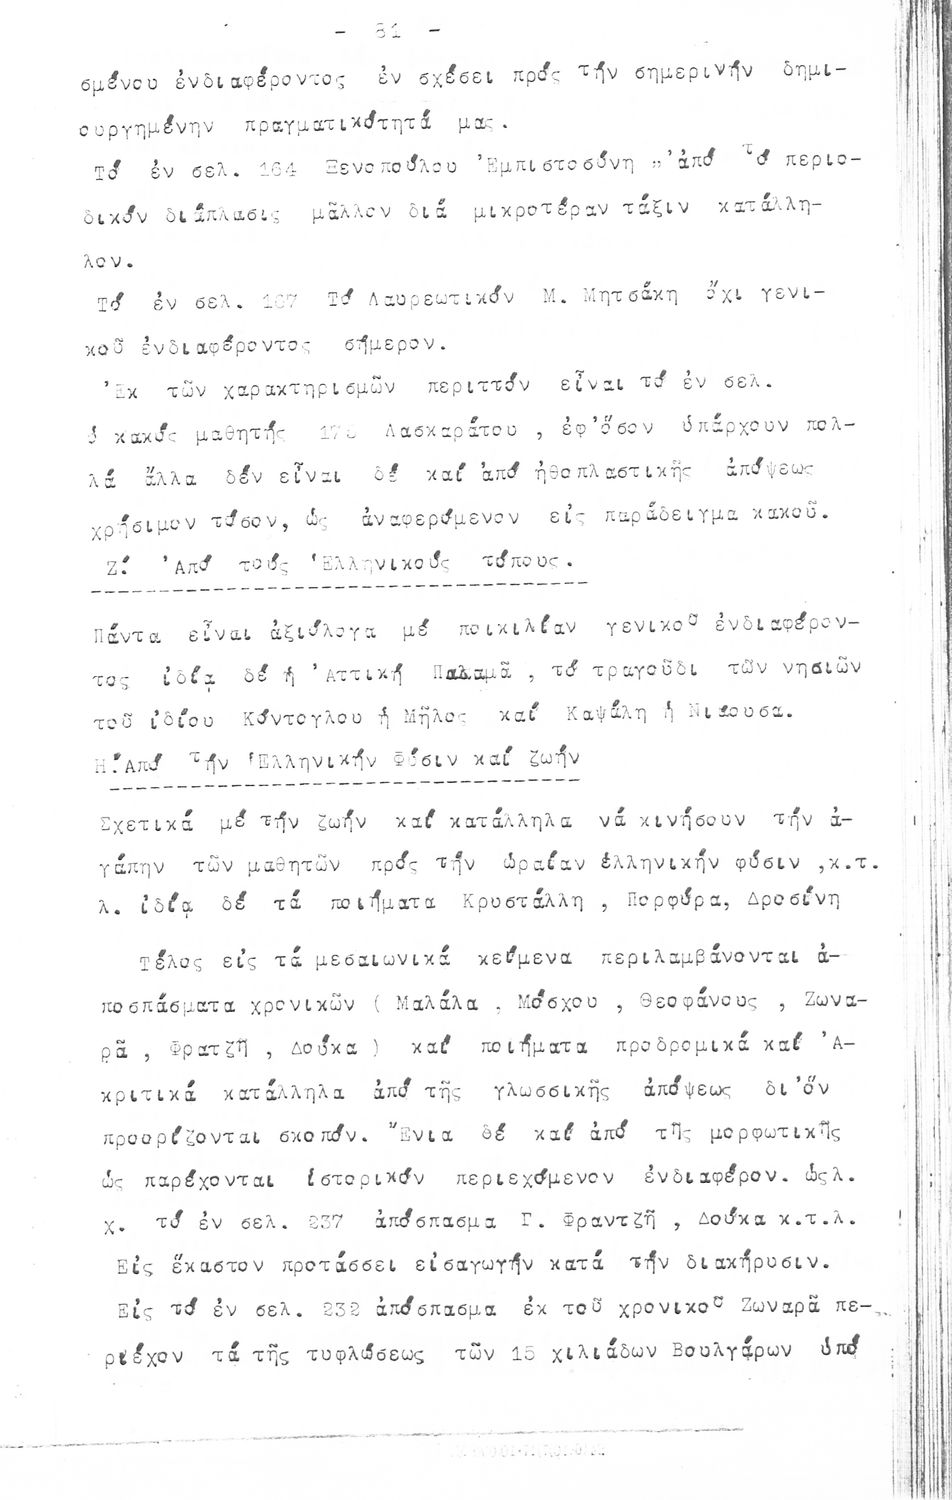 - 81 -
σμένου ἐνδιαφέροντος ἐν σχέσει πρός τήν σημερινήν δημι-
ουργημένην πραγματικότητά μας.
Τό ἐν σελ. 164 Ξενοπούλου 'Εμπιστοσύνη »'ἀπό τό περιο-
δικόν διάπλασις μᾶλλον διά μικροτέραν τάξιν κατάλλη-
λον.
Τό ἐν σελ. 167 Τό Λαυρεωτικόν Μ. Μητσάκη ὄχι γενι-
κοῦ ἐνδιαφέροντος σήμερον.
'Εκ τῶν χαρακτηρισμῶν περιττόν εἶναι τό ἐν σελ.
ὁ κακός μαθητής Λασκαράτου , ἐφ'ὅσον ὑπάρχουν πολ-
λά ἄλλα δέν εἶναι δέ καί ἀπό ἠθοπλαστικῆς ἀπόψεως
χρήσιμον τόσον, ὡς ἀναφερόμενον εἰς παράδειγμα κακοῦ.
Ζ! 'Από τούς 'Ελληνικούς τόπους.
Πάντα εἶναι ἀξιόλογα μέ ποικιλίαν γενικοῦ ἐνδιαφέρον-
τος ἰδίᾳ δέ ἡ 'Αττική Παλαμᾶ , τό τραγοῦδι τῶν νησιῶν
τοῦ ἰδίου Κόντογλου ἡ Μῆλος καί Καψάλη ἡ Νιάουσα.
Η!'Από τήν 'Ελληνικήν Φύσιν καί ζωήν
Σχετικά μέ τήν ζωήν καί κατάλληλα νά κινήσουν τήν ἀ-
γάπην τῶν μαθητῶν πρός τήν ὡραίαν ἑλληνικήν φύσιν ,κ.τ.
λ. ἰδίᾳ δέ τά ποιήματα Κρυστάλλη , Πορφύρα, Δροσίνη
Τέλος εἰς τά μεσαιωνικά κείμενα περιλαμβάνονται ἀ-
ποσπάσματα χρονικῶν ( Μαλάλα , Μόσχου , Θεοφάνους , Ζωνα-
ρᾶ , Φρατζῆ , Δούκα ) καί ποιήματα προδρομικά καί 'Α-
κριτικά κατάλληλα ἀπό τῆς γλωσσικῆς ἀπόψεως δι'ὅν
προορίζονται σκοπόν. "Ενια δέ καί ἀπό τῆς μορφωτικῆς
ὡς παρέχονται ἱστορικόν περιεχόμενον ἐνδιαφέρον. ὡςλ.
χ. τό ἐν σελ. 237 ἀπόσπασμα Γ. Φραντζῆ , Δούκα κ.τ.λ.
Εἰς ἕκαστον προτάσσει εἰσαγωγήν κατά τήν διακήρυσιν.
Εἰς τό ἐν σελ. 232 ἀπόσπασμα ἐκ τοῦ χρονικοῦ Ζωναρᾶ πε-
ριέχον τά τῆς τυφλώσεως τῶν 15 χιλιάδων Βουλγάρων ὑπό